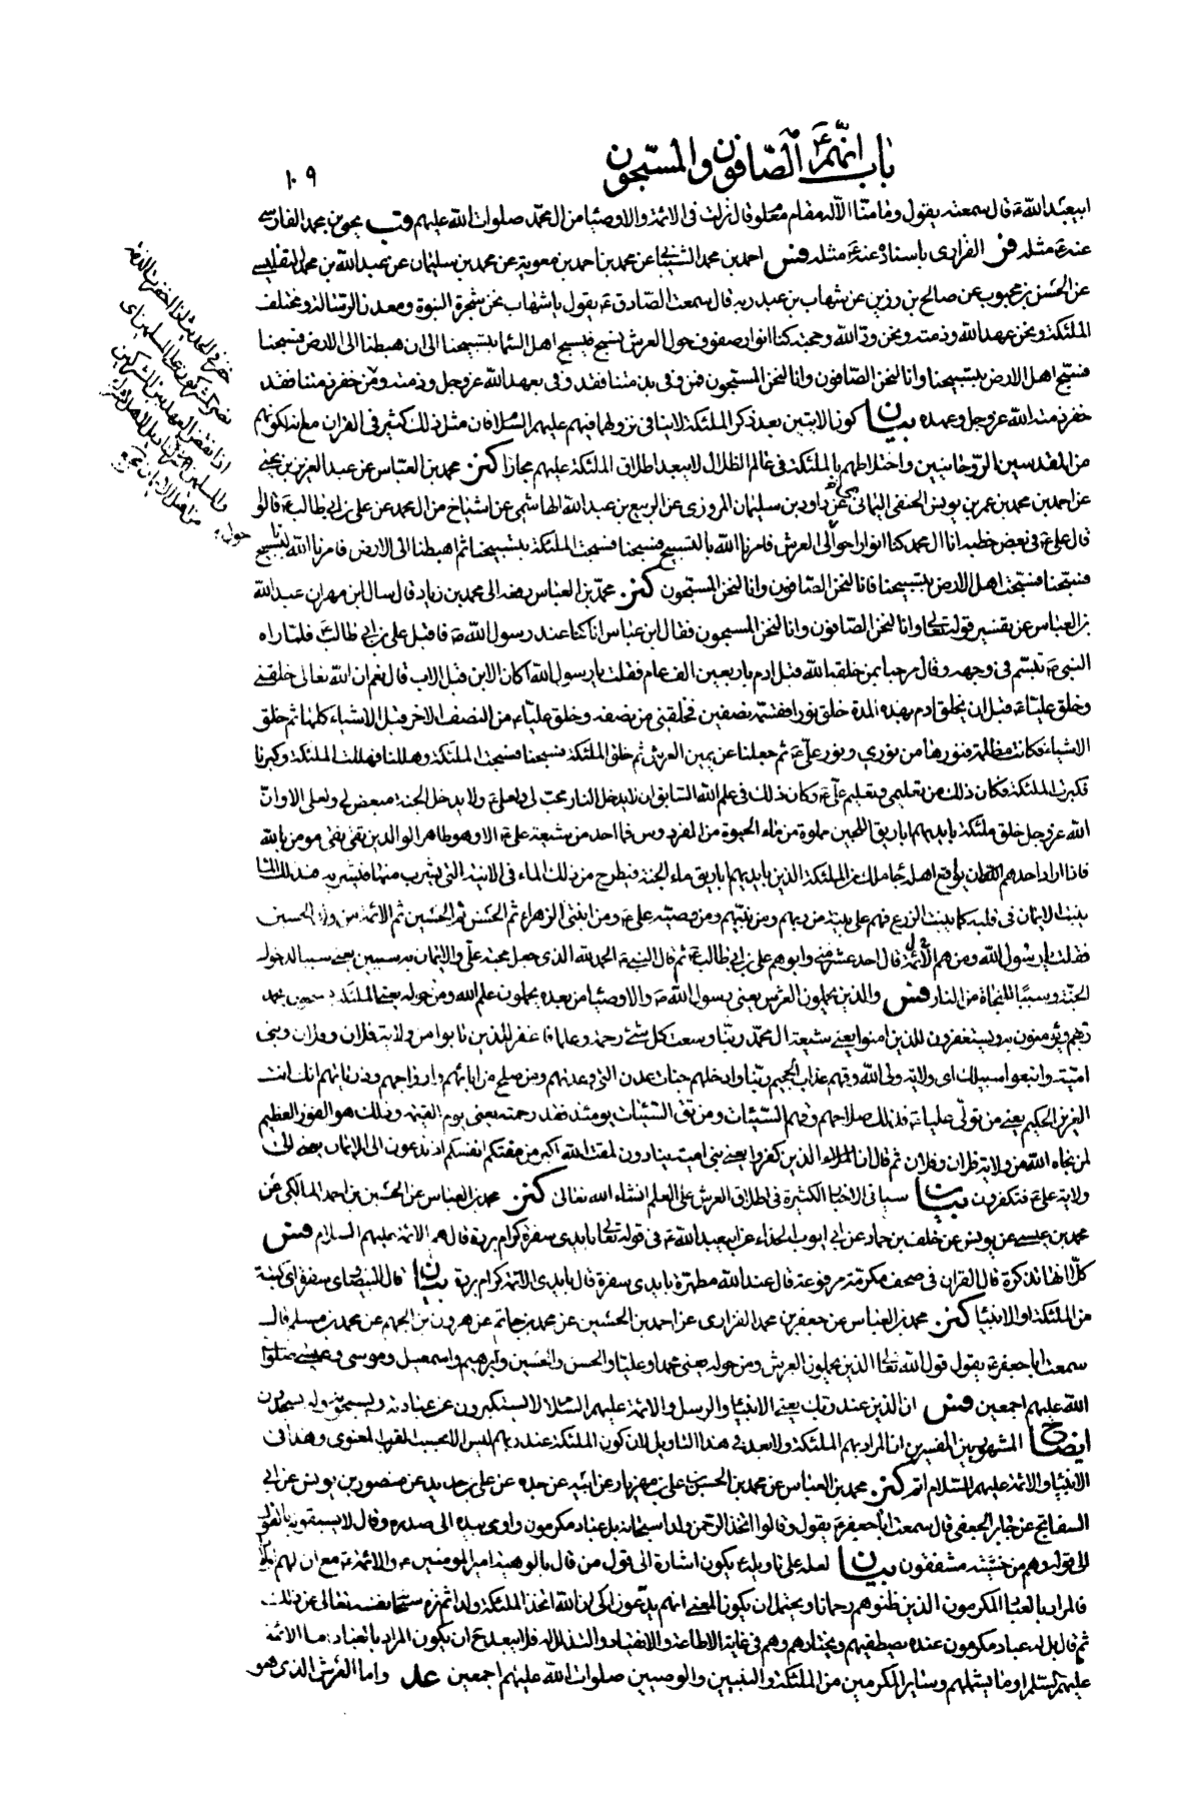 باب انهم ع الصافون والمسبحون
١٠٩
ابيعبد الله ع قال سمعته يقول وما منا الا له مقام معلوم قال نزلت فى الائمة والاوصيا من ال محمد صلوات الله عليهم قب يحيى بن محمد الفارسى
عنه ع مثله فر الفزارى باسناده عنه ع مثله فس احمد بن محمد الشيبانى عن محمد بن احمد بن معوية عن محمد بن سليمان عن عبد الله بن محمد التفليسى
عن الحسن بن محبوب عن صالح بن رزين عن شهاب بن عبد ربه قال سمعت الصادق ع يقول يا شهاب نحن شجرة النبوة ومعدن الرسالة ومختلف
الملئكة ونحن عهد الله وذمته ونحن ود الله وحجته كنا انوار صفوف حول العرش نسبح فيسبح اهل السما بتسبيحنا الى ان هبطنا الى الارض فسبحنا
فسبح اهل الارض بتسبيحنا وانا لنحن الصافون وانا لنحن المسبحون فمن وفى بذمتنا فقد وفى بعهد الله عز وجل وذمته ومن خفر ذمتنا فقد
خفر ذمة الله عز وجل وعهده بيان كون الايتين بعد ذكر الملئكة لا ينافى نزولهما فيهم عليهم السلام فان مثل ذلك كثير فى القران مع انه لكونهم
من المقدسين الروحانيين واختلاطهم بالملئكة فى عالم الظلال لا يبعد اطلاق الملئكة عليهم مجازا كنز محمد بن العباس عن عبد العزيز بن يحيى
عن احمد بن محمد بن عمر بن يونس الحنفى اليمانى عن داود بن سليمان المروزى عن الربيع بن عبد الله الهاشمى عن اشياخ من ال محمد عن على بن ابى طالب ع قالوا
قال على ع فى بعض خطبه انا ال محمد كنا انوارا حول العرش فامرنا الله بالتسبيح فسبحنا فسبحت الملئكة بتسبيحنا ثم اهبطنا الى الارض فامرنا الله بالتسبيح
فسبحنا فسبحت اهل الارض بتسبيحنا فانا لنحن الصافون وانا لنحن المسبحون كنز محمد بن العباس رفعه الى محمد بن زياد قال سال ابن مهران عبد الله
بن العباس عن تفسير قوله تعالى وانا لنحن الصافون وانا لنحن المسبحون فقال ابن عباس انا كنا عند رسول الله ص فاقبل على بن ابى طالب ع فلما راه
النبى ص تبسم فى وجهه وقال مرحبا بمن خلقه الله قبل ادم باربعين الف عام فقلت يا رسول الله اكان الابن قبل الاب قال نعم ان الله تعالى خلقنى
وخلق عليا ع قبل ان يخلق ادم بهذه المدة خلق نورا فقسمه نصفين فخلقنى من نصفه وخلق عليا ع من النصف الاخر قبل الاشياء كلها ثم خلق
الاشياء فكانت مظلمة فنورها من نوري ونور على ع ثم جعلنا عن يمين العرش ثم خلق الملئكة فسبحنا فسبحت الملئكة وهللنا فهللت الملئكة وكبرنا
فكبرت الملئكة فكان ذلك من تعليمى وتعليم على ع وكان ذلك فى علم الله السابق ان لا يدخل النار محب لى ولعلى ع ولا يدخل الجنة مبغض لى ولعلى الا وان
الله عز وجل خلق ملئكة بايديهم اباريق اللجين مملوة من ماء الحيوة من الفردوس فما احد من شيعة على ع الا وهو طاهر الوالدين تقى نقى مومن بالله
فاذا اراد احدهم ان يواقع اهله جا ملك من الملئكة الذين بايديهم اباريق ماء الجنة فيطرح من ذلك الماء فى الانية التى يشرب منها فيشرب من ذلك الماء
ينبت الايمان فى قلبه كما ينبت الزرع فهم على بينة من ربهم ومن نبيهم ومن وصيه على ع ومن ابنتى الزهراء ثم الحسن ثم الحسين ثم الائمة من ولد الحسين
فقلت يا رسول الله ومن هم الائمة قال احد عشر منى وابوهم على بن ابى طالب ع ثم قال النبى ص الحمد لله الذى جعل محبة على والايمان به سببين يعنى سببا لدخول
الجنة وسببا للنجاة من النار فس والذين يحملون العرش يعنى رسول الله ص والاوصيا من بعده يحملون علم الله ومن حوله يعنى الملئكة يسبحون بحمد
ربهم ويؤمنون به ويستغفرون للذين امنوا يعنى شيعة ال محمد ربنا وسعت كل شئ رحمة وعلما فاغفر للذين تابوا من ولاية فلان وفلان وبنى
امية واتبعوا سبيلك اى ولاية ولى الله وقهم عذاب الجحيم ربنا وادخلهم جنات عدن التى وعدتهم ومن صلح من ابائهم وازواجهم وذرياتهم انك انت
العزيز الحكيم يعنى من تولى عليا ع فذلك صلاحهم وقهم السيئات ومن تق السيئات يومئذ فقد رحمته يعنى يوم القيمة وذلك هو الفوز العظيم
لمن نجاه الله من ولاية فلان وفلان ثم قال ان الذين كفروا يعنى بنى امية ينادون لمقت الله اكبر من مقتكم انفسكم اذ تدعون الى الايمان يعنى الى
ولاية على ع فتكفرون بيان سياتى الاخبار الكثيرة فى اطلاق العرش على العلم انشاء الله تعالى كنز محمد بن العباس عن الحسين بن احمد المالكى عن
محمد بن عيسى عن يونس عن خلف بن حماد عن ابى ايوب الحذاء عن ابيعبد الله ع فى قوله تعالى بايدى سفرة كرام بررة قال هم الائمة عليهم السلام فس
كلا انها تذكرة قال القران فى صحف مكرمة مرفوعة قال عند الله مطهرة بايدى سفرة قال بايدى الائمة كرام بررة بيان قال البيضاوى سفرة اى كتبة
من الملئكة او الانبيا كنز محمد بن العباس عن جعفر بن محمد الفزارى عن احمد بن الحسين عن محمد بن حاتم عن هرون بن الجهم عن محمد بن مسلم قال
سمعت ابا جعفر ع يقول قول الله تعالى الذين يحملون العرش ومن حوله يعنى محمدا وعليا والحسن والحسين وابرهيم واسمعيل وموسى وعيسى صلوات
الله عليهم اجمعين فس ان الذين عند ربك يعنى الانبيا والرسل والائمة عليهم السلام لا يستكبرون عن عبادته ويسبحونه وله يسجدون
ايضاح المشهور بين المفسرين ان المراد بهم الملئكة ولا بعد فى هذا التاويل لان كون الملئكة عند ربهم ليس الا بحسب القرب المعنوى وهذا فى
الانبيا والائمة عليهم السلام اتم كنز محمد بن العباس عن محمد بن الحسن بن على بن مهزيار عن ابيه عن جده عن على بن حديد عن منصور بن يونس عن ابى
السفاتج عن جابر الجعفى قال سمعت ابا جعفر ع يقول وقالوا اتخذ الرحمن ولدا سبحانه بل عباد مكرمون واومى بيده الى صدره وقال لا يسبقونه بالقول
الى قوله وهم من خشيته مشفقون بيان لعله على تاويله ع يكون اشارة الى قول من قال بالوهية امير المومنين ع والائمة ع مع ان لهم
فالمراد بالعباد المكرمون الذين ظنوهم رحمانا ويحتمل ان يكون المعنى انهم يدعون ان الله اتخذ الملئكة ولدا ثم نزه سبحانه نفسه تعالى عن ذلك
ثم قال بل له عباد مكرمون عنده يصطفيهم ويختارهم وهم فى غاية الاطاعة والانقياد والتذلل له فلا يبعد ح ان يكون المراد بالعباد اما الائمة
عليهم السلم او ما يشملهم وساير المكرمين من الملئكة والنبيين والوصيين صلوات الله عليهم اجمعين عد واما العرش الذى هو